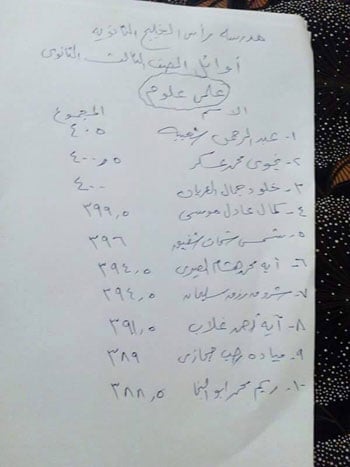 مدرسة رأس الخليج الثانوية
أوائل الصف الثالث الثانوى
علمى علوم
الاسم المجموع
١- عبدالرحمن شعيب ٤٠٥
٢- نجوى محمد عسكر ٤٠٠,٥
٣- خلود جمال العريان ٤٠٠
٤- كمال عادل موسى ٣٩٩,٥
٥- شمس شعبان شفيق ٣٩٦
٦- آية محمد هشام ٣٩٤,٥
٧- شروق رزق سليمان ٣٩٤,٥
٨- آية احمد غلاب ٣٩١,٥
٩- مياده رجب حجازى ٣٨٩
١٠- ريم محمد ابو النجا ٣٨٨,٥